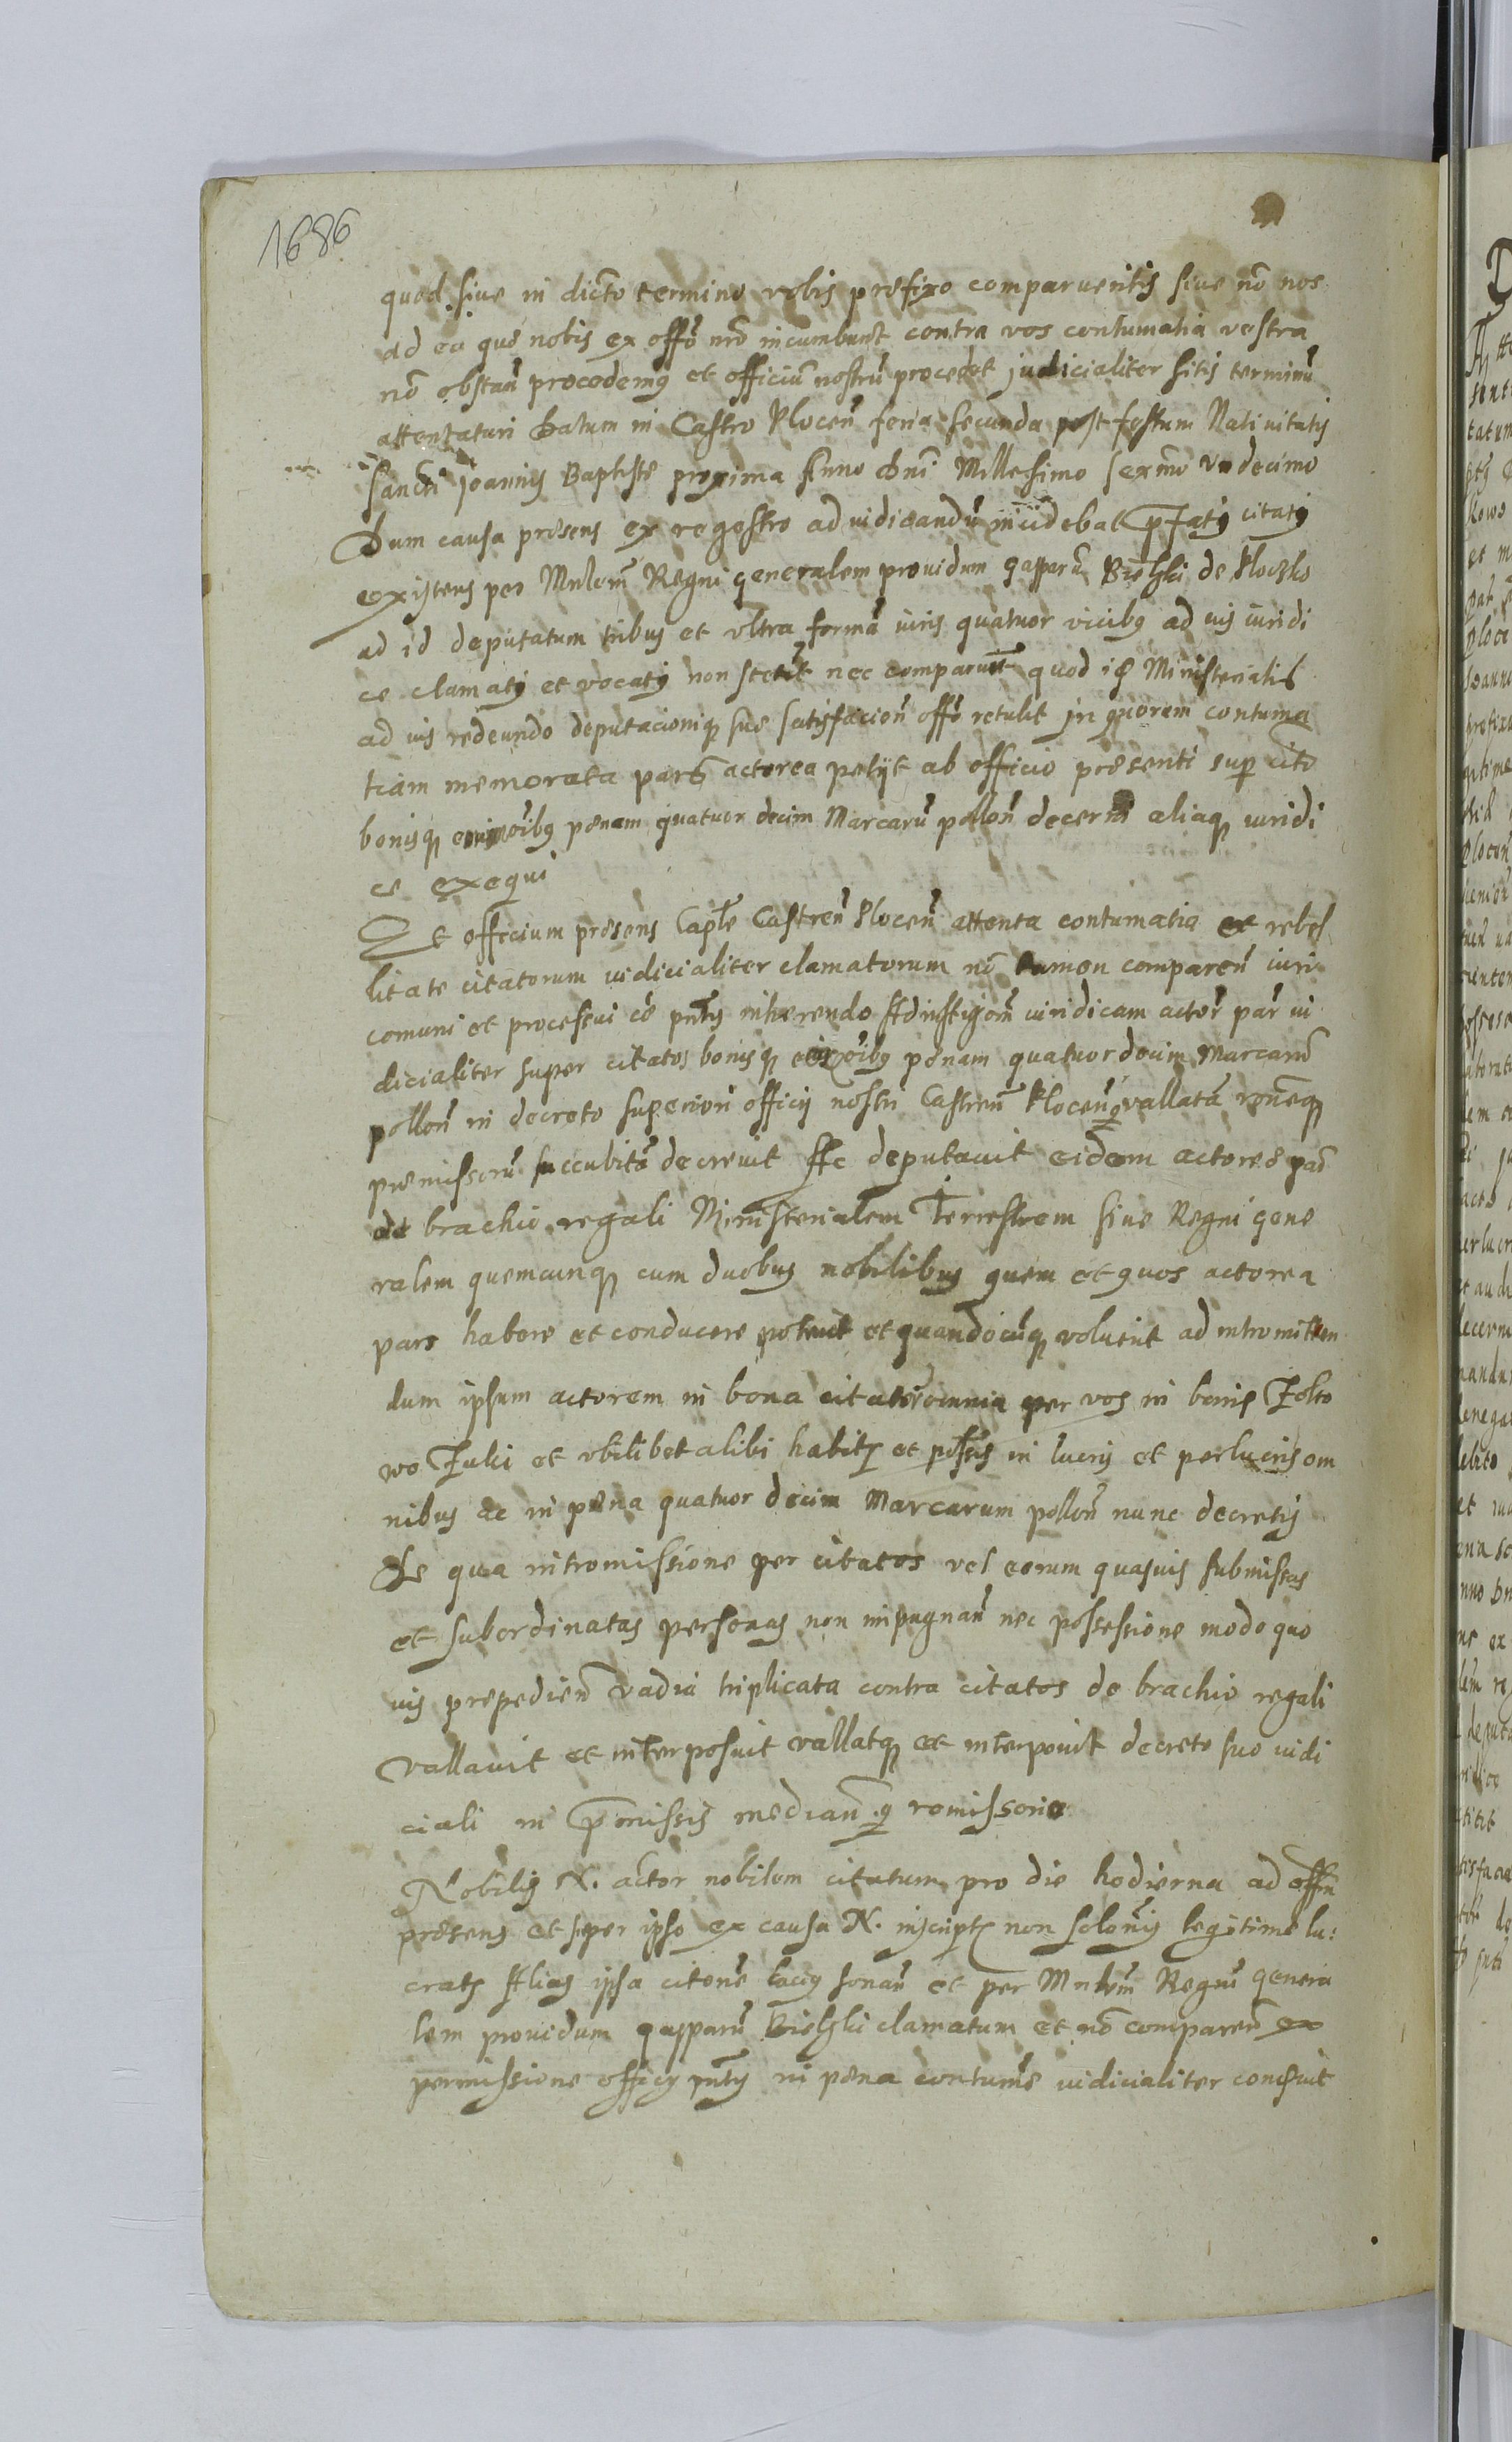 1686
quod sive in dicto termino vobis prefixo comparueritis siue nõ nos
ad ea que nobis ex offõ nrõ incumbunt contra vos contumatia vestra
nõ obstañ procedemus et officiũ nostrũ procedet judicialiter sitis terminũ
attentaturi Datum in Castro Plocen̄ feria secunda post festum Natiuitatis
Sancti Joannis Baptiste proxima Anno Dni Millesimo sexmo vndecimo
Dum causa presens ex regestro ad iudicandũ incidebat pfatus citatus
existens per Mnlem̄ Regni generalem prouidum Gasparũ Bielski de Ploczko
ad id deputatum tribus et vltra formã iuris quatuor vicibus ad ius iuridi
ce clamatus et vocatus non stetit nec comparuit quod id Ministerialis
ad ius redeundo deputacionique sue satisfacien̄ offõ retulit in quorem contuma
tiam memorata pars actorea petijt ab officio presenti sup cito
bonisque omnibus penam quatuor decim Marcarũ pollon̄ decerni aliaque iuridi
ce exequi
Et officium presens Caplē Castren̄ Plocen̄ attenta contumatia et rebel
litate citatorum iudicialiter clamatorum nõ tamen comparen̄ iuri
comuni et processui cē pntis inherendo Adinstigom̄ iuridicam actor par iu
dicialiter super citatos bonisque omnibus penam quatuor decim Marcarũ
pollon̄ in decreto superiori officij nostri Castren̄ Plocen̄ vallatã
premissorũ succubitã decreuit Ac deputauit eidem actoree
de brachio regali Ministerialem Terrestrem siue Regni gene
ralem quemcunque cum duobus nobilibus quem et quos actorea
pars habere et conducere potuit et quandocũque voluerit ad intromitten
dum ipsum actorem in bona citatorũ omnia per vos in bonis Zolto
wo Zulki et vbilibet alibi habita et possis in lucris et perlucris om
nibus ac in pena quatuor decim Marcarum pollon̄ nunc decretis
De qua intromissione per citatos vel eorum quasuis submissas
et subordinatas personas non inpugnan̄ nec possessione modo quo
uis prepedien̄ vadia triplicata contra citatos de brachio regali
vallauit et interposuit vallatque et interponit decreto suo iudi
ciali in pmissis median̄ remissorie
Nobilis N. actor nobilem citatum pro die hodierna ad offm̄
presens et super ipso ex causa N. inscripta non solonis legitime lu:
crats Alias ipsa citone lacius sonan̄ et per Mnlem̄ Regni genera
lem prouidum Gasparũ Bielski clamatum et nõ comparen̄ ex
permissione officij pntis in pena contume iudicialiter conuicit